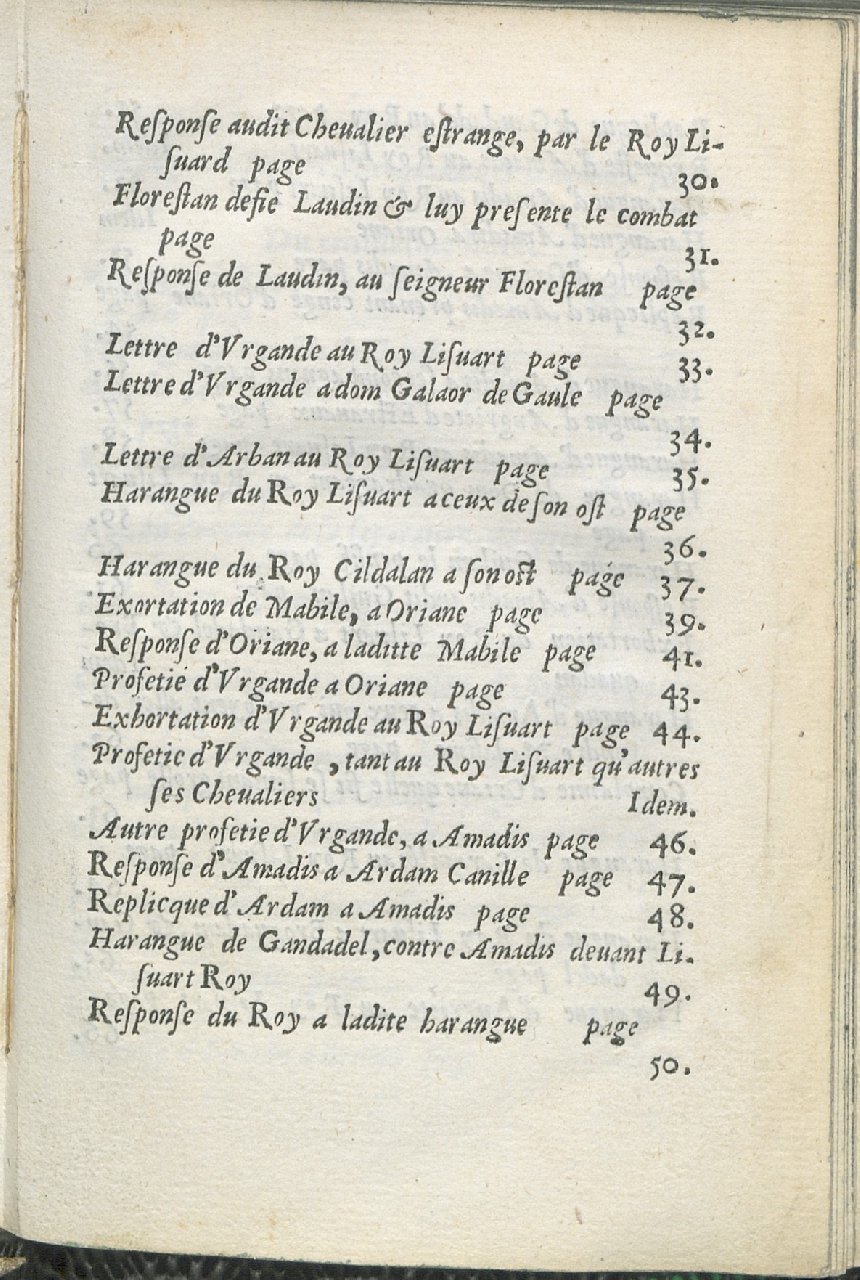 Reſponſe audit Cheualier eſtrange, par le Roy Li-
ſuard page 30.
Floreſtan defie Laudin & luy preſente le combat
page 31.
Reſponſe de Laudin, au ſeigneur Floreſtan page
32.
Lettre d'Vrgande au Roy Liſuart page 33.
Lettre d'Vrgande a dom Galaor de Gaule page
34.
Lettre d'Arban au Roy Liſuart page 35.
Harangue du Roy Liſuart a ceux de ſon oſt page
36.
Harangue du Roy Cildalan a ſon oſt page 37.
Exortation de Mabile, a Oriane page 39.
Reſponſe d'Oriane, a laditte Mabile page 41.
Profetie d'Vrgande a Oriane page 43.
Exhortation d'Vrgande au Roy Liſuart page 44.
Profetie d'Vrgande, tant au Roy Liſuart qu'autres
ſes Cheualiers Idem.
Autre profetie d'Vrgande, a Amadis page 46.
Reſponſe d'Amadis a Ardam Canille page 47.
Replicque d'Ardam a Amadis page 48.
Harangue de Gandadel, contre Amadis deuant Li-
ſuart Roy 49.
Reſponſe du Roy a ladite harangue page
50.